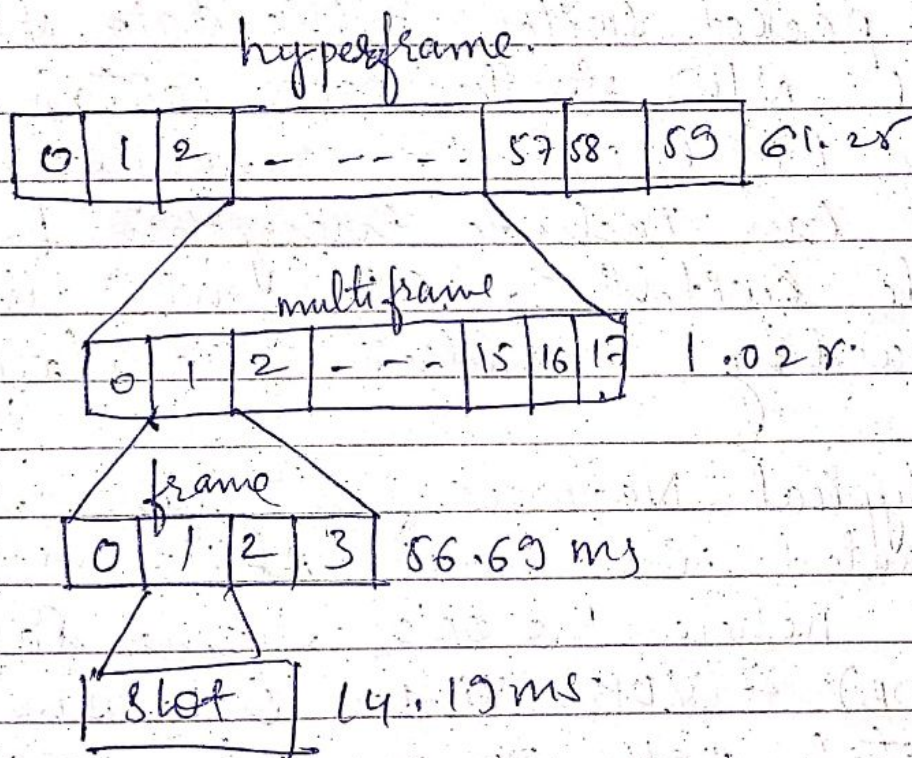 hyperframe.
0 1 2 . - - - - - . 57 58. 59 61.2s
multiframe.
0 1 2 - - - 15 16 17 1.02s.
frame
0 1. 2 3 56.69 ms
Slot 14.19ms